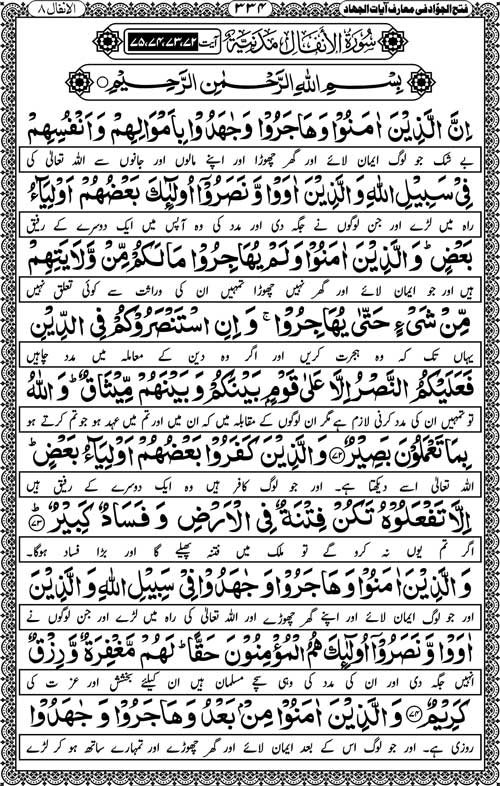 فتح الجوّاد فی معارف آیات الجهاد ۳۳۴ الانفال ۸
سُوۡرَةُ الۡاَنۡفَالِ مَدَنِيَّة آیت ۷۲،۷۳،۷۴،۷۵
بِسۡمِ اللهِ الرَّحۡمٰنِ الرَّحِيۡمِ
اِنَّ الَّذِيۡنَ اٰمَنُوۡا وَهَاجَرُوۡا وَجٰهَدُوۡا بِاَمۡوَالِهِمۡ وَاَنۡفُسِهِمۡ
بے شک جو لوگ ایمان لائے اور گھر چھوڑا اور اپنے مالوں اور جانوں سے اللہ تعالیٰ کی
فِىۡ سَبِيۡلِ اللهِ وَالَّذِيۡنَ اٰوَوا وَّنَصَرُوۡۤا اُولٰٓئِكَ بَعۡضُهُمۡ اَوۡلِيَآءُ
راہ میں لڑے اور جن لوگوں نے جگہ دی اور مدد کی وہ آپس میں ایک دوسرے کے رفیق
بَعۡضٍؕ وَالَّذِيۡنَ اٰمَنُوۡا وَلَمۡ يُهَاجِرُوۡا مَا لَكُمۡ مِّنۡ وَّلَايَتِهِمۡ
ہیں اور جو ایمان لائے اور گھر نہیں چھوڑا تمہیں ان کی وراثت سے کوئی تعلق نہیں
مِّنۡ شَىۡءٍ حَتّٰى يُهَاجِرُوۡا‌ ۚ وَاِنِ اسۡتَنۡصَرُوۡكُمۡ فِى الدِّيۡنِ
یہاں تک کہ وہ ہجرت کریں اور اگر وہ دین کے معاملہ میں مدد چاہیں
فَعَلَيۡكُمُ النَّصۡرُ اِلَّا عَلٰى قَوۡمٍۢ بَيۡنَكُمۡ وَبَيۡنَهُمۡ مِّيۡثَاقٌ ؕ وَاللهُ
تو تمہیں ان کی مدد کرنی لازم ہے مگر ان لوگوں کے مقابلہ میں کہ ان میں اور تم میں عہد ہو جو تم کرتے ہو
بِمَا تَعۡمَلُوۡنَ بَصِيۡرٌ ﴿۷۲﴾ وَالَّذِيۡنَ كَفَرُوۡا بَعۡضُهُمۡ اَوۡلِيَآءُ بَعۡضٍؕ
اللہ تعالیٰ اسے دیکھتا ہے۔ اور جو لوگ کافر ہیں وہ ایک دوسرے کے رفیق ہیں
اِلَّا تَفۡعَلُوۡهُ تَكُنۡ فِتۡنَةٌ فِى الۡاَرۡضِ وَفَسَادٌ كَبِيۡرٌؕ ﴿۷۳﴾
اگر تم یوں نہ کرو گے تو ملک میں فتنہ پھیلے گا اور بڑا فساد ہوگا۔
وَالَّذِيۡنَ اٰمَنُوۡا وَهَاجَرُوۡا وَجٰهَدُوۡا فِىۡ سَبِيۡلِ اللهِ وَالَّذِيۡنَ
اور جو لوگ ایمان لائے اور اپنے گھر چھوڑے اور اللہ تعالیٰ کی راہ میں لڑے اور جن لوگوں نے
اٰوَوْا وَّنَصَرُوۡۤا اُولٰٓئِكَ هُمُ الۡمُؤۡمِنُوۡنَ حَقًّا‌ؕ لَهُمۡ مَّغۡفِرَةٌ وَّرِزۡقٌ
انہیں جگہ دی اور ان کی مدد کی وہی سچے مسلمان ہیں ان کیلئے بخشش اور عزت کی
كَرِيۡمٌ ﴿۷۴﴾ وَالَّذِيۡنَ اٰمَنُوۡا مِنۡۢ بَعۡدُ وَهَاجَرُوۡا وَجٰهَدُوۡا
روزی ہے۔ اور جو لوگ اس کے بعد ایمان لائے اور گھر چھوڑے اور تمہارے ساتھ ہو کر لڑے